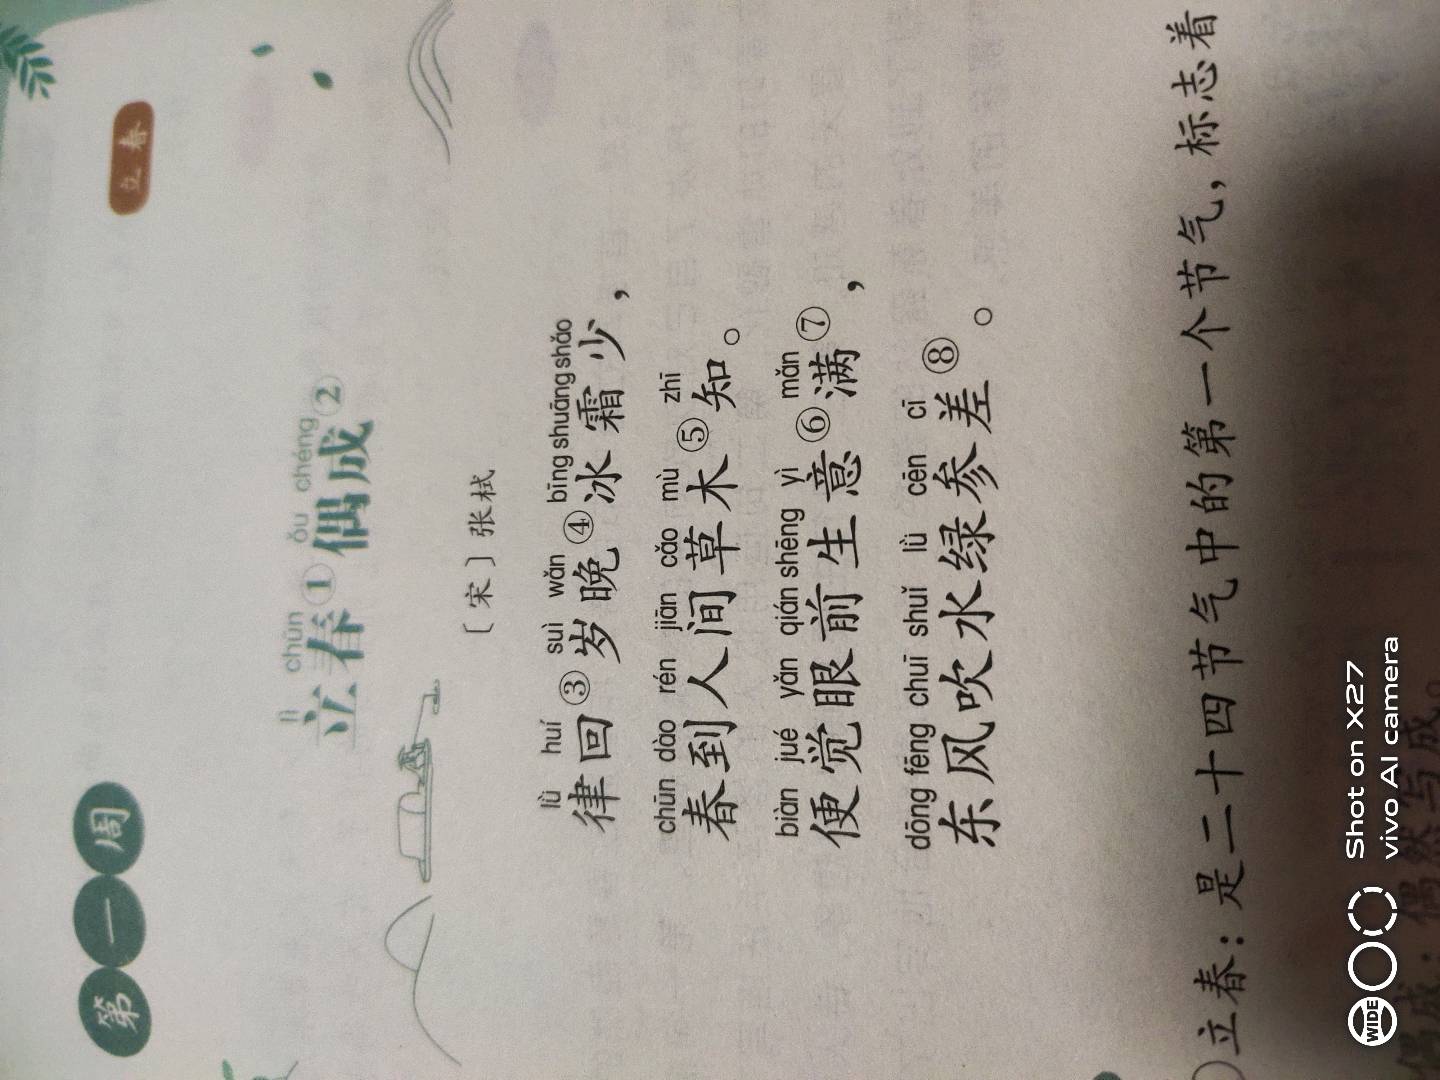 第一周
立春
lì chūn ǒu chéng
立春①偶成②
〔宋〕张栻
lǜ huí suì wǎn bīng shuāng shǎo
律回③岁晚④冰霜少，
chūn dào rén jiān cǎo mù zhī
春到人间草木⑤知。
biàn jué yǎn qián shēng yì mǎn
便觉眼前生意⑥满⑦，
dōng fēng chuī shuǐ lǜ cēn cī
东风吹水绿参差⑧。
立春：是二十四节气中的第一个节气，标志着
偶成：偶然写成。
WIDE
Shot on X27
vivo AI camera